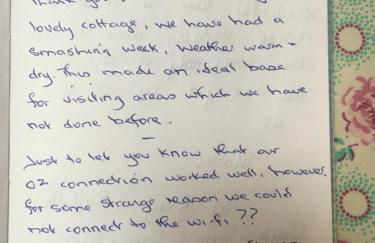 lovely cottage, we have had a
smashing week, weather warm +
dry. This made an ideal base
for visiting areas which we have
not done before.
—
Just to let you know that our
O2 connection worked well, however,
for some strange reason we could
not connect to the wi.fi ??